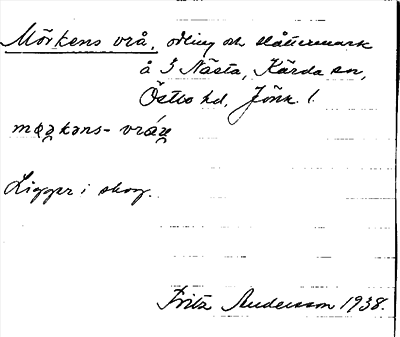 Mörkens vrå, odling och slåttermark
å S Nästa, Kärda sn,
Östbo hd, Jönk. l.
Ligger i skog.
Fritz Andersson 1938.